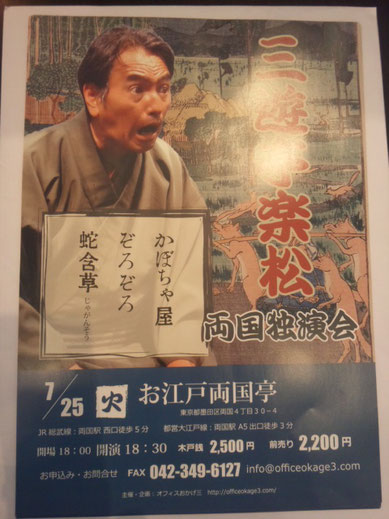 三遊亭楽松
両国独演会
かぼちゃ屋
ぞろぞろ
蛇含草
じゃがんそう
7/25 火 お江戸両国亭
東京都墨田区両国4丁目30-4
JR 総武線:両国駅 西口徒歩5分 都営大江戸線:両国駅 A5出口徒歩3分
開場 18:00 開演 18:30 木戸銭 2,500円 前売り 2,200円
お申込み・お問合せ FAX 042-349-6127 info@officeokage3.com
主催・企画:オフィスおかげ三 http://officeokage3.com/